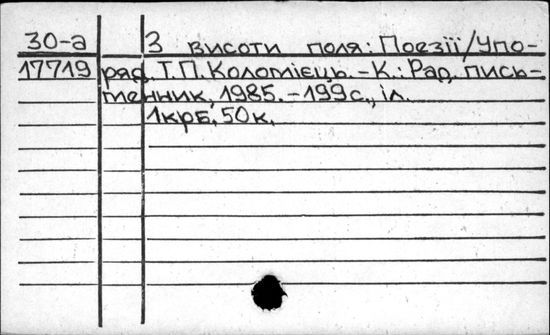 30-а З висоти поля: Поезії/Упо-
17719 ряд. Т.П. Коломієць. -К.: Рад. пись-
менник, 1985. - 199 с., іл.
1крб. 50к.